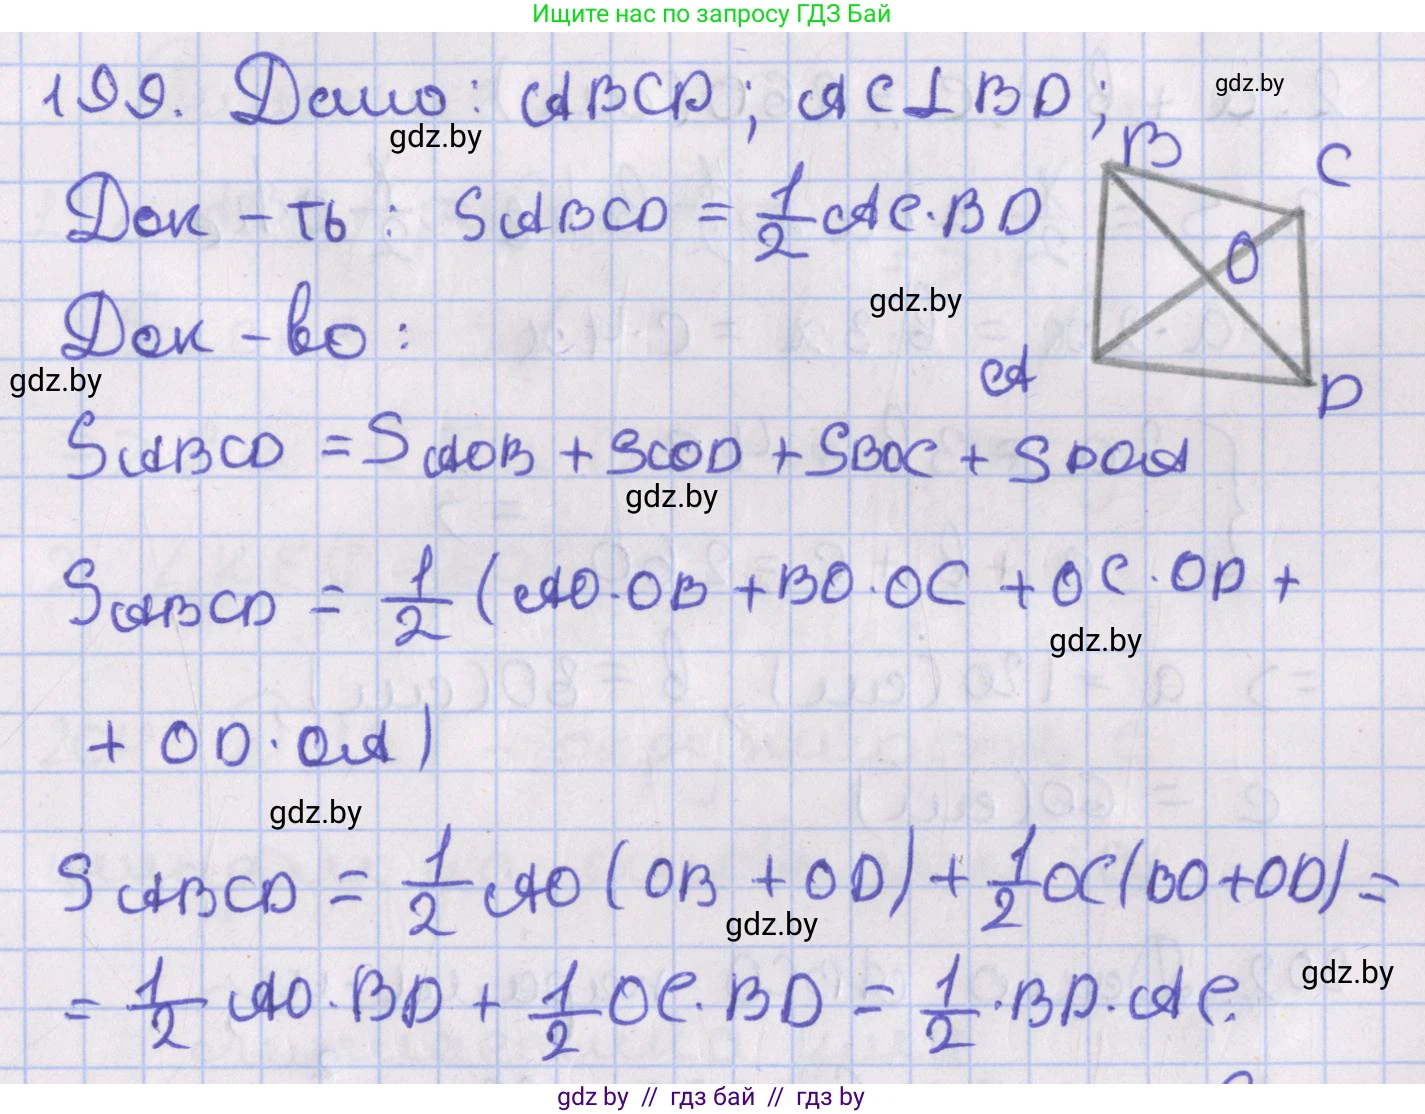 Ищите нас по запросу ГДЗ Бай
199. Дано: ABCD; AC⊥BD;
gdz.by
gdz.by
B
C
Док-ть: SABCD = 1/2 AC·BD
O
gdz.by
Док-во:
gdz.by
A
D
SABCD = SAOB + SCOD + SBOC + SDOA
gdz.by
SABCD = 1/2 (AO·OB + BO·OC + OC·OD +
gdz.by
+ OD·OA)
gdz.by
SABCD = 1/2 AO(OB + OD) + 1/2 OC(BO+OD) =
gdz.by
gdz.by
= 1/2 AO·BD + 1/2 OC·BD = 1/2·BD·AC.
gdz by // гдз бай // гдз by